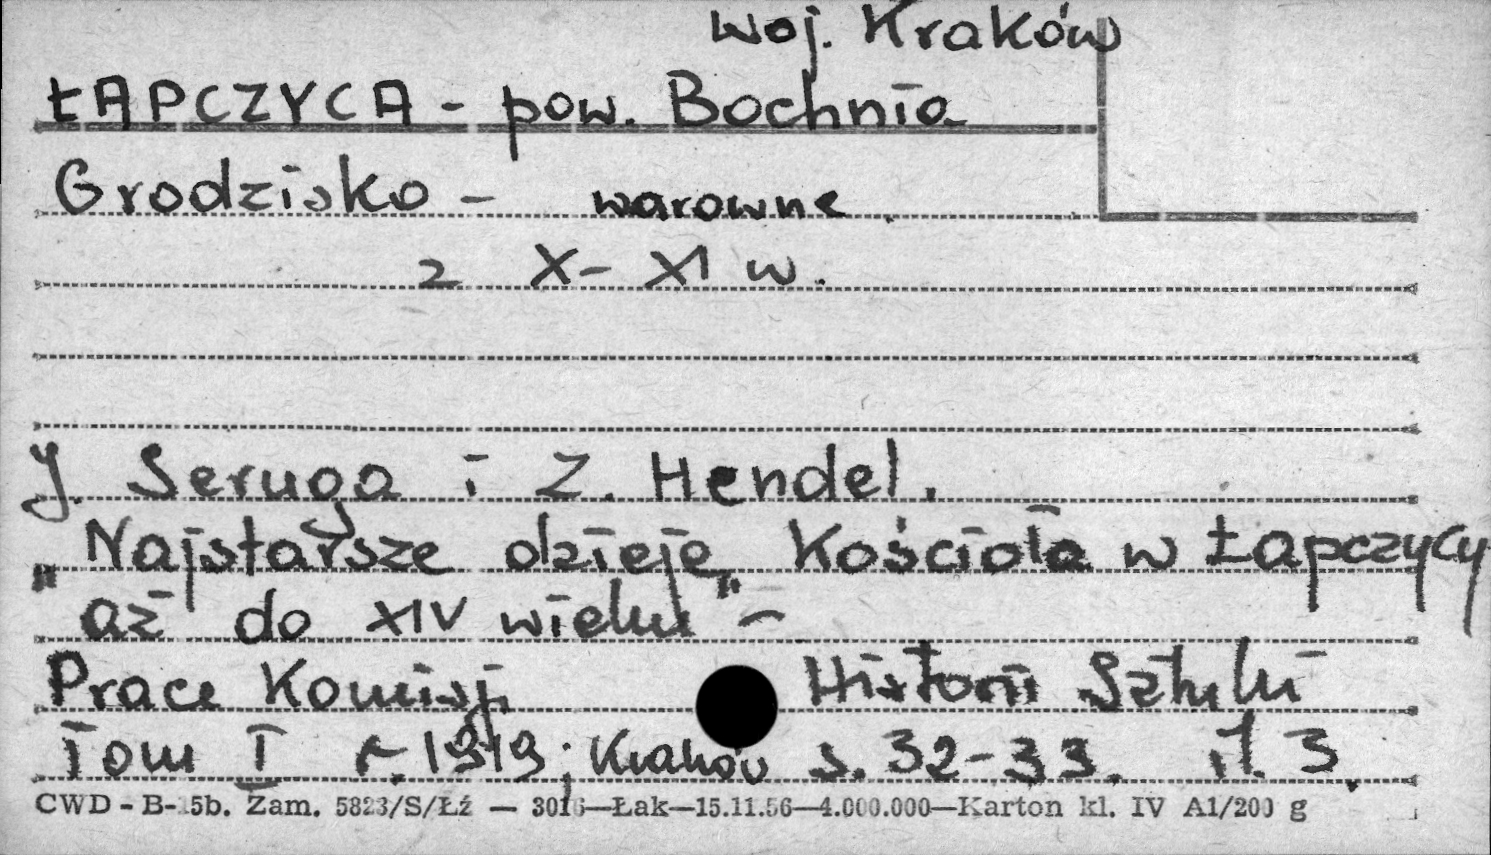 Woj. Kraków
ŁAPCZYCA - pow. Bochnia
Grodzisko - warowne
z X- XI w.
J. Seruga i Z. Hendel.
„Najstarsze dzieje Kościoła w Łapczycy
aż do XIV wieku" -
Prace Komisji Historii Sztuki
Tom I r. 1919; Kraków s. 32-33. il. 3.
CWD - B-15b. Zam. 5823/S/Łź — 3016—Łak—15.11.56—4.000.000—Karton kl. IV A1/200 g